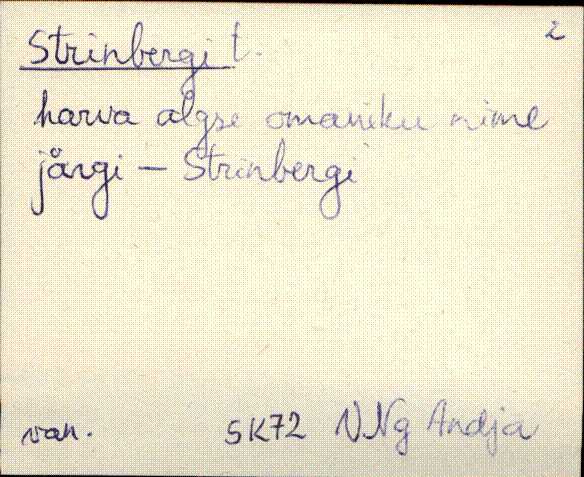 2
Strinbergi t.
harva algse omaniku nime
järgi – Strinbergi
van. SK72 N Ng Andja